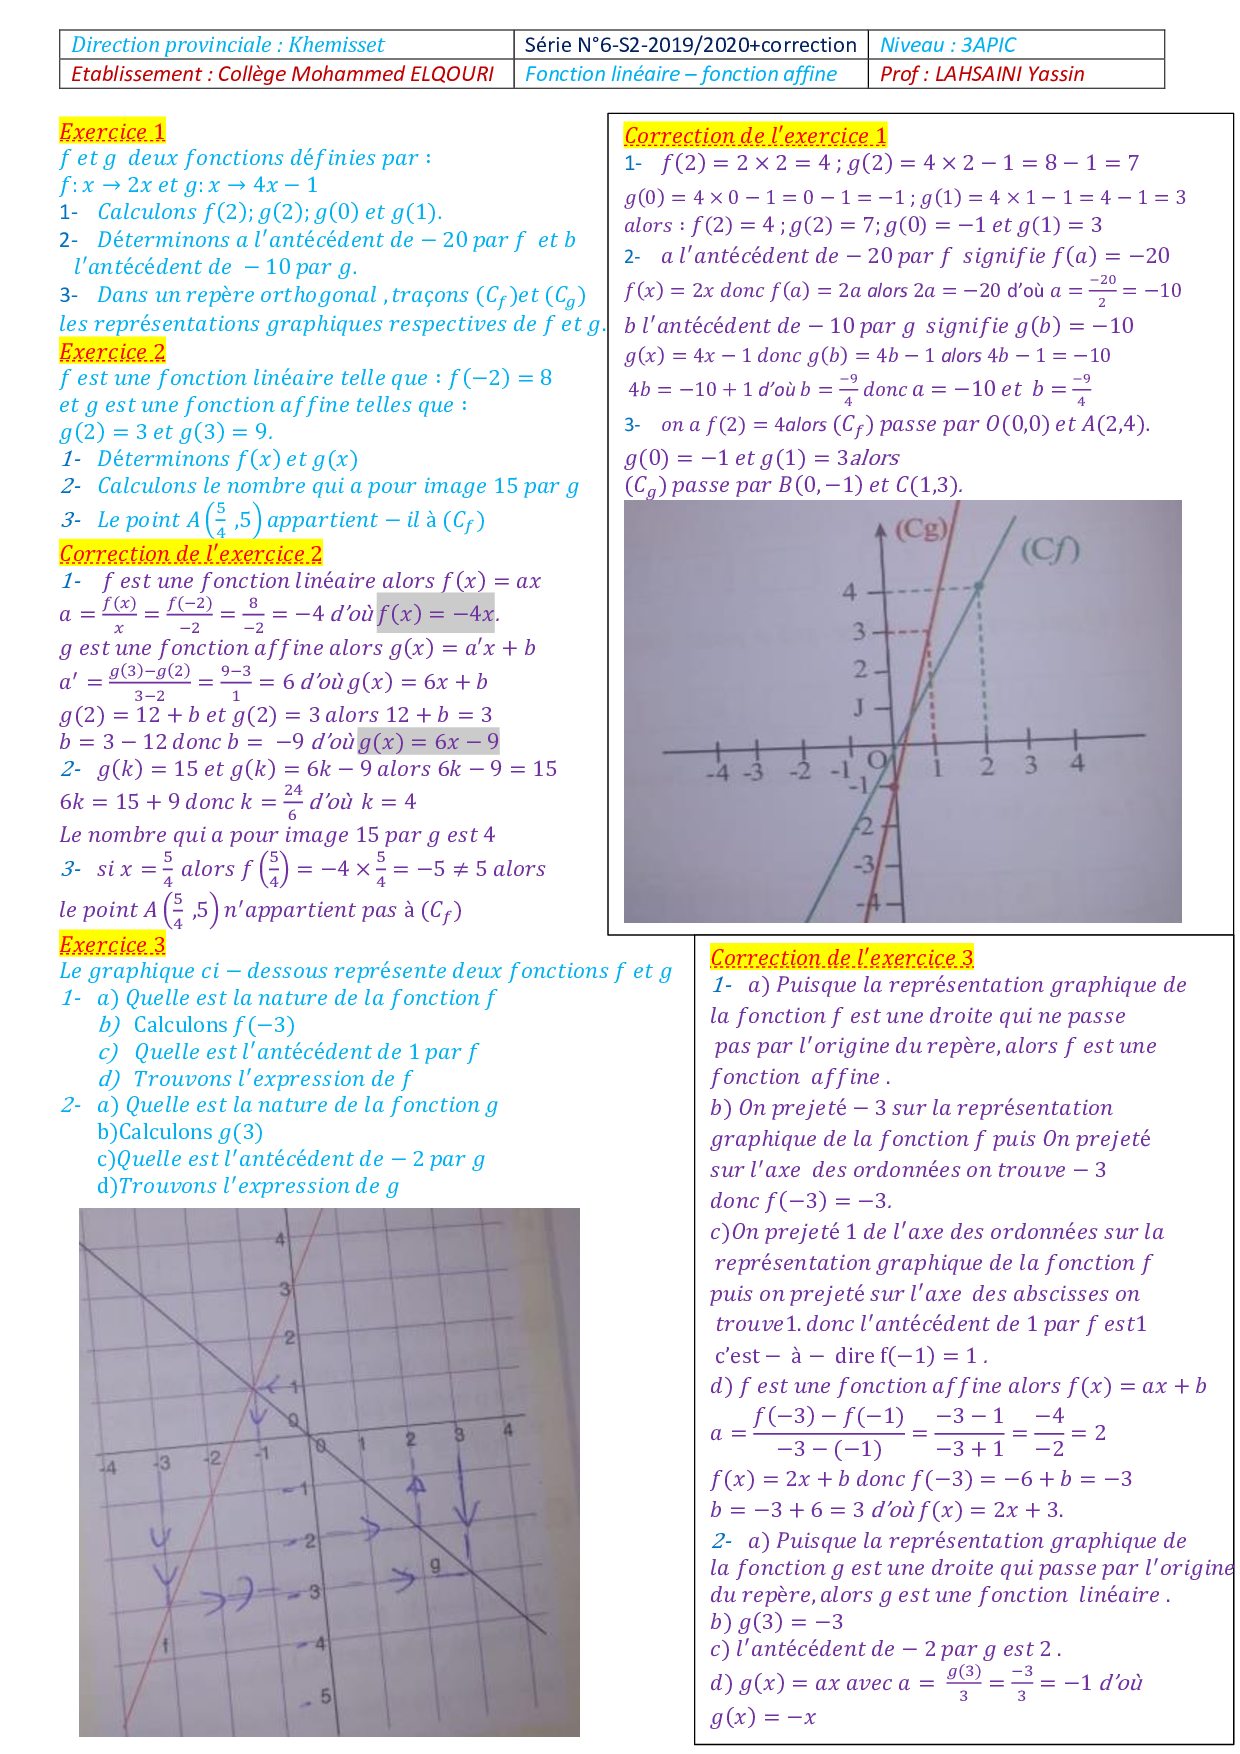 Direction provinciale : Khemisset
Série N°6-S2-2019/2020+correction
Niveau : 3APIC
Etablissement : Collège Mohammed ELQOURI
Fonction linéaire – fonction affine
Prof : LAHSAINI Yassin
Exercice 1
f et g deux fonctions définies par :
f: x → 2x et g: x → 4x − 1
1- Calculons f(2); g(2); g(0) et g(1).
2- Déterminons a l'antécédent de − 20 par f et b
l'antécédent de − 10 par g.
3- Dans un repère orthogonal , traçons (C_f)et (C_g)
les représentations graphiques respectives de f et g.
Exercice 2
f est une fonction linéaire telle que : f(−2) = 8
et g est une fonction affine telles que :
g(2) = 3 et g(3) = 9.
1- Déterminons f(x) et g(x)
2- Calculons le nombre qui a pour image 15 par g
3- Le point A(5/4 ,5) appartient − il à (C_f)
Correction de l'exercice 2
1- f est une fonction linéaire alors f(x) = ax
a = f(x)/x = f(−2)/−2 = 8/−2 = −4 d'où f(x) = −4x.
g est une fonction affine alors g(x) = a'x + b
a' = g(3)−g(2)/3−2 = 9−3/1 = 6 d'où g(x) = 6x + b
g(2) = 12 + b et g(2) = 3 alors 12 + b = 3
b = 3 − 12 donc b = −9 d'où g(x) = 6x − 9
2- g(k) = 15 et g(k) = 6k − 9 alors 6k − 9 = 15
6k = 15 + 9 donc k = 24/6 d'où k = 4
Le nombre qui a pour image 15 par g est 4
3- si x = 5/4 alors f(5/4) = −4 × 5/4 = −5 ≠ 5 alors
le point A(5/4 ,5) n'appartient pas à (C_f)
Exercice 3
Le graphique ci − dessous représente deux fonctions f et g
1- a) Quelle est la nature de la fonction f
b) Calculons f(−3)
c) Quelle est l'antécédent de 1 par f
d) Trouvons l'expression de f
2- a) Quelle est la nature de la fonction g
b)Calculons g(3)
c)Quelle est l'antécédent de − 2 par g
d)Trouvons l'expression de g
4
3
2
1
0
-4 -3 -2 -1 0 1 2 3 4
-1
-2
-3
-4
-5
f
g
Correction de l'exercice 1
1- f(2) = 2 × 2 = 4 ; g(2) = 4 × 2 − 1 = 8 − 1 = 7
g(0) = 4 × 0 − 1 = 0 − 1 = −1 ; g(1) = 4 × 1 − 1 = 4 − 1 = 3
alors : f(2) = 4 ; g(2) = 7; g(0) = −1 et g(1) = 3
2- a l'antécédent de − 20 par f signifie f(a) = −20
f(x) = 2x donc f(a) = 2a alors 2a = −20 d'où a = −20/2 = −10
b l'antécédent de − 10 par g signifie g(b) = −10
g(x) = 4x − 1 donc g(b) = 4b − 1 alors 4b − 1 = −10
4b = −10 + 1 d'où b = −9/4 donc a = −10 et b = −9/4
3- on a f(2) = 4alors (C_f) passe par O(0,0) et A(2,4).
g(0) = −1 et g(1) = 3alors
(C_g) passe par B(0, −1) et C(1,3).
(Cg)
(Cf)
4
3
2
J
O
-4 -3 -2 -1 1 2 3 4
-1
-2
-3
-4
Correction de l'exercice 3
1- a) Puisque la représentation graphique de
la fonction f est une droite qui ne passe
pas par l'origine du repère, alors f est une
fonction affine .
b) On prejeté − 3 sur la représentation
graphique de la fonction f puis On prejeté
sur l'axe des ordonnées on trouve − 3
donc f(−3) = −3.
c)On prejeté 1 de l'axe des ordonnées sur la
représentation graphique de la fonction f
puis on prejeté sur l'axe des abscisses on
trouve1. donc l'antécédent de 1 par f est1
c'est − à − dire f(−1) = 1 .
d) f est une fonction affine alors f(x) = ax + b
a = f(−3) − f(−1)/−3 − (−1) = −3 − 1/−3 + 1 = −4/−2 = 2
f(x) = 2x + b donc f(−3) = −6 + b = −3
b = −3 + 6 = 3 d'où f(x) = 2x + 3.
2- a) Puisque la représentation graphique de
la fonction g est une droite qui passe par l'origine
du repère, alors g est une fonction linéaire .
b) g(3) = −3
c) l'antécédent de − 2 par g est 2 .
d) g(x) = ax avec a = g(3)/3 = −3/3 = −1 d'où
g(x) = −x